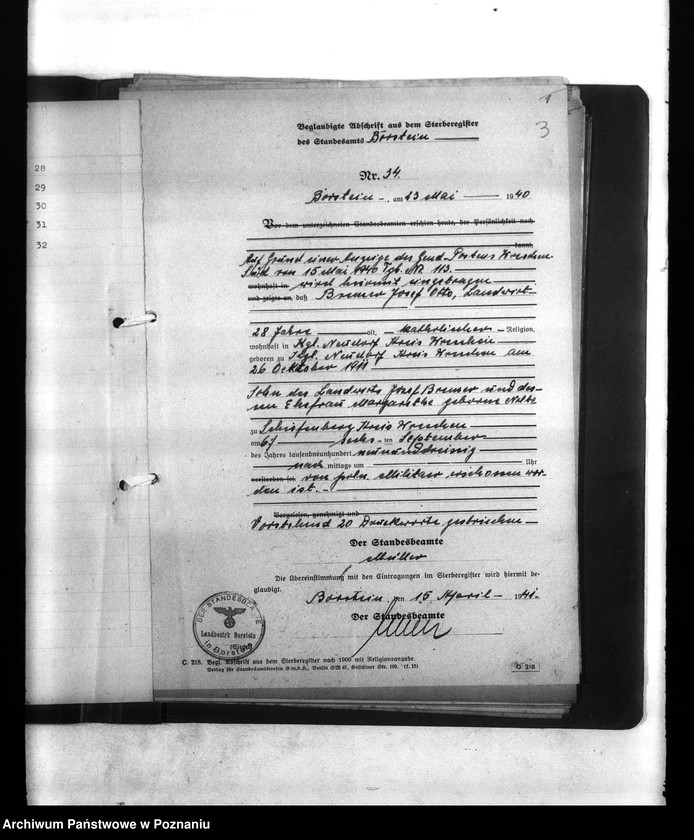 28
29
30
31
32
1
3
Beglaubigte Abschrift aus dem Sterberegister
des Standesamts Borstein
Nr. 34.
Borstein -, am 23 Mai 1940
Vor dem unterzeichneten Standesbeamten erschien heute, der Persönlichkeit nach
kannt,
Auf Grund einer Anzeige des Gend.-Postens Wreschen
Süd von 15 Mai 1940 Tgb. Nr 113.
wohnhaft in wird hiermit eingetragen
und zeigte an, daß Bremer Josef Otto, Landwirt
28 Jahre alt, - katholischer - Religion,
wohnhaft in Kgl. Neudorf Kreis Wreschen
geboren zu Kgl. Neudorf Kreis Wreschen am
26 Oktober 1911
Sohn des Landwirts Josef Bremer und des-
sen Ehefrau Margarethe geborene Nolte
zu Kreis Wreschen
am 6/ sechs - ten September
des Jahres tausendneunhundert neununddreissig
nach mittags um Uhr
verstorben sei von poln. Militär erschossen wor-
den ist. -
Vorgelesen, genehmigt und
Vorstehend 20 Druckworte gestrichen
Der Standesbeamte
Müller
Die Übereinstimmung mit den Eintragungen im Sterberegister wird hiermit be-
glaubigt.
Borstein, den 15 April - 1941.
Der Standesbeamte
DER STANDESBEAMTE
Landbezirk Borstein
in Borstein
C. 218. Begl. Abschrift aus dem Sterberegister nach 1900 mit Religionsangabe.
Verlag für Standesamtswesen G.m.b.H., Berlin SW 61, Gitschiner Str. 109.
C 218
Archiwum Państwowe w Poznaniu